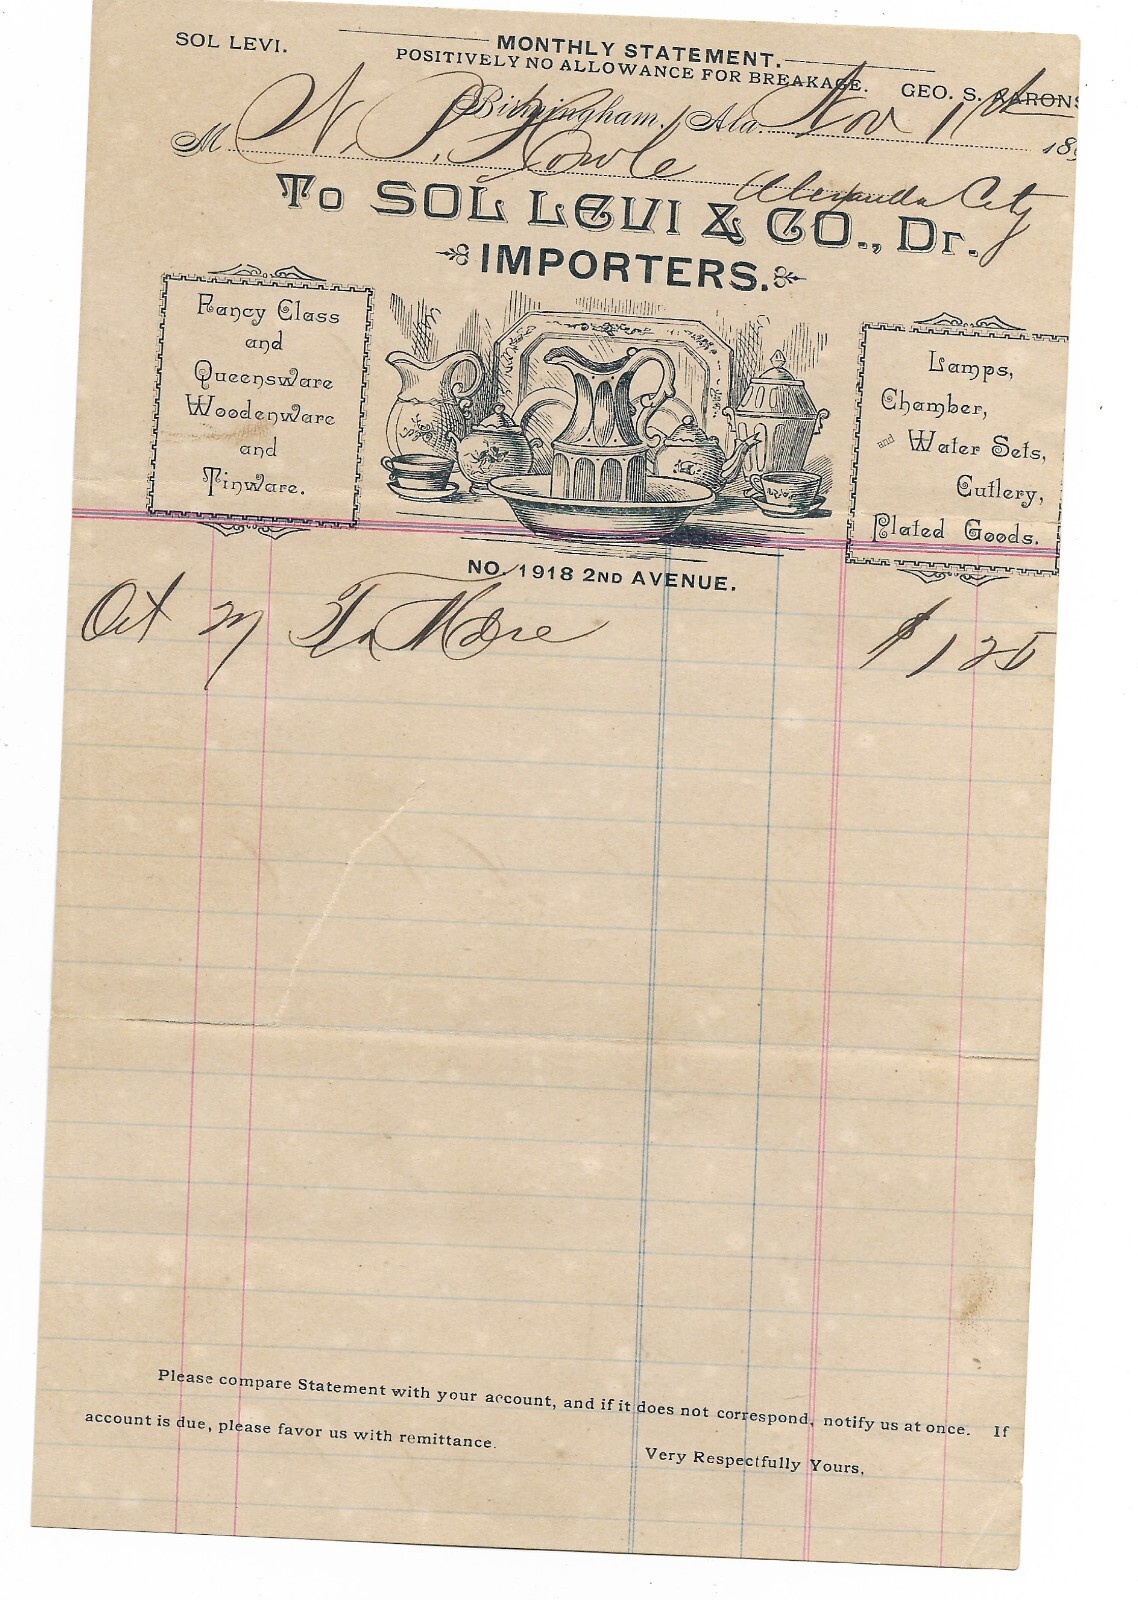 SOL LEVI.
MONTHLY STATEMENT.
POSITIVELY NO ALLOWANCE FOR BREAKAGE.
GEO. S. AARONS
Birmingham, Ala. Nov 1st 18
M N. P.
Alexander City
To SOL LEVI & CO., Dr.
IMPORTERS.
Fancy Glass
and
Queensware
Woodenware
and
Tinware.
Lamps,
Chamber,
and Water Sets,
Cutlery,
Plated Goods.
NO. 1918 2ND AVENUE.
Oct 27 To Mdse $ 1 25
Please compare Statement with your account, and if it does not correspond, notify us at once. If
account is due, please favor us with remittance.
Very Respectfully Yours,